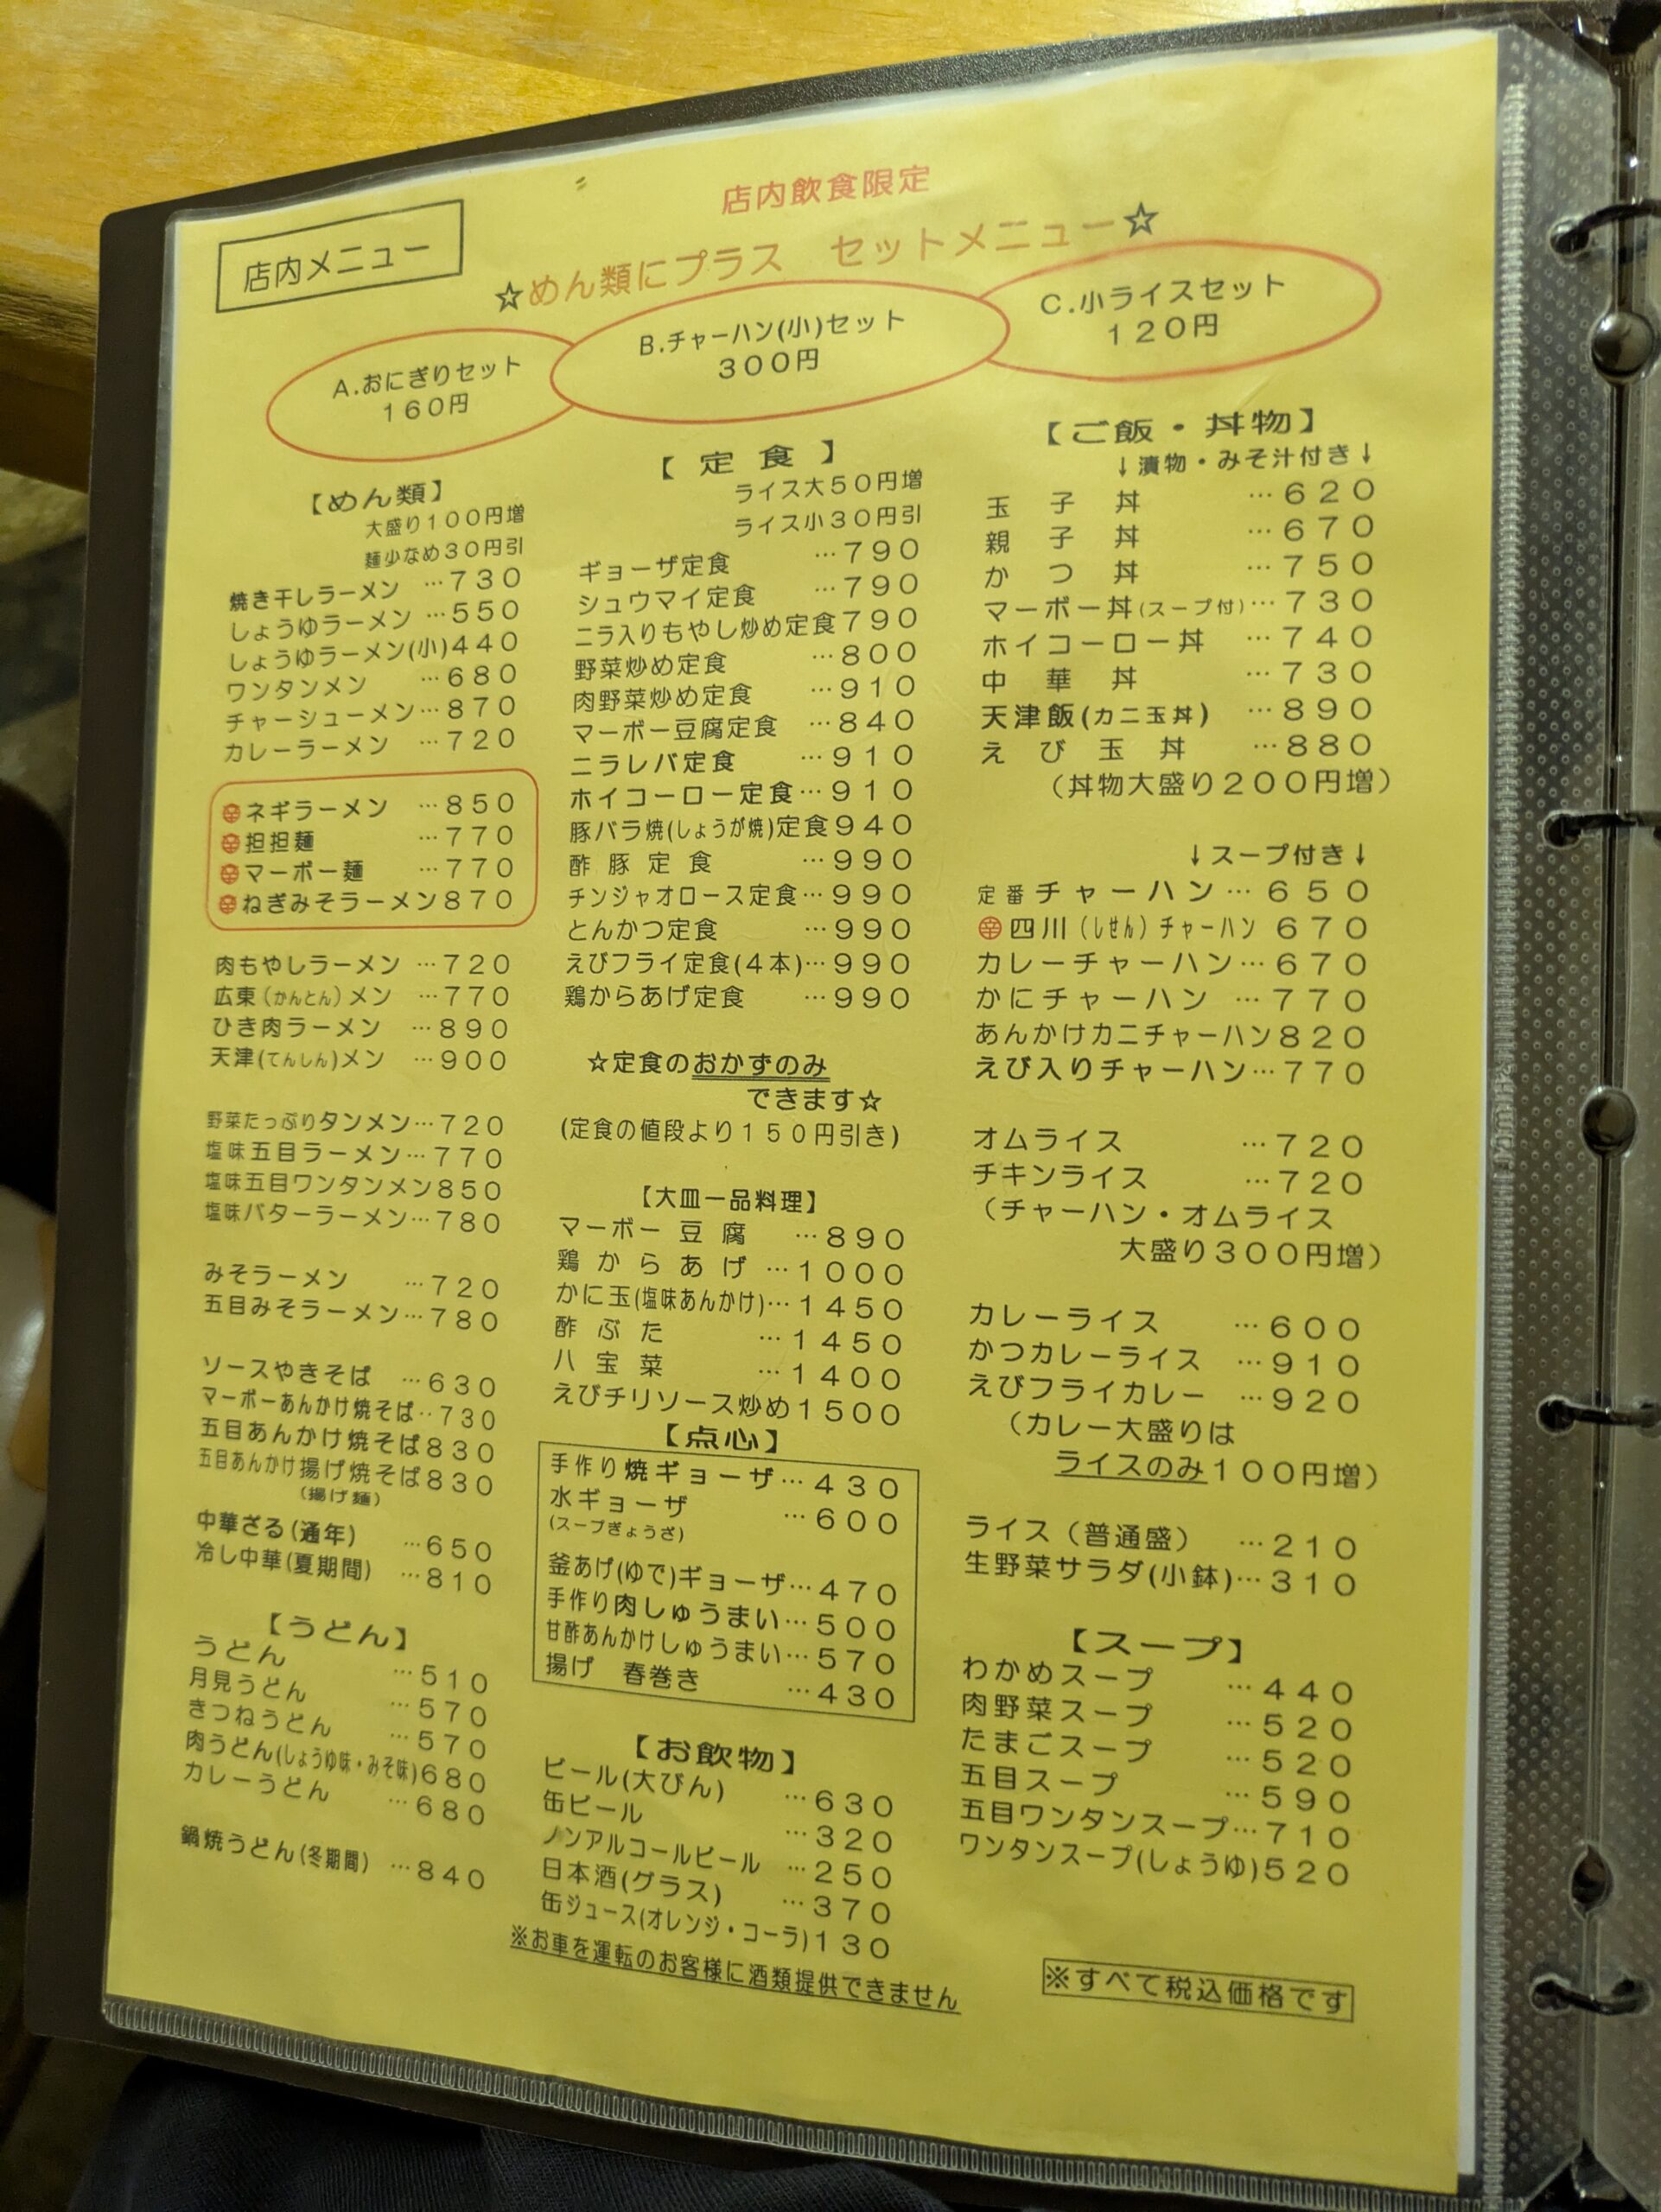 店内メニュー
店内飲食限定
☆めん類にプラス　セットメニュー☆
A.おにぎりセット
160円
B.チャーハン(小)セット
300円
C.小ライスセット
120円
【めん類】
大盛り100円増
麺少なめ30円引
焼き干しラーメン …730
しょうゆラーメン …550
しょうゆラーメン(小)440
ワンタンメン …680
チャーシューメン…870
カレーラーメン …720
辛ネギラーメン …850
辛担担麺 …770
辛マーボー麺 …770
辛ねぎみそラーメン870
肉もやしラーメン …720
広東(かんとん)メン …770
ひき肉ラーメン …890
天津(てんしん)メン …900
野菜たっぷりタンメン…720
塩味五目ラーメン…770
塩味五目ワンタンメン850
塩味バターラーメン…780
みそラーメン …720
五目みそラーメン…780
ソースやきそば …630
マーボーあんかけ焼そば‥730
五目あんかけ焼そば830
五目あんかけ揚げ焼そば830
(揚げ麺)
中華ざる(通年) …650
冷し中華(夏期間) …810
【うどん】
うどん …510
月見うどん …570
きつねうどん …570
肉うどん(しょうゆ味・みそ味)680
カレーうどん …680
鍋焼うどん(冬期間) …840
【定食】
ライス大50円増
ライス小30円引
ギョーザ定食 …790
シュウマイ定食 …790
ニラ入りもやし炒め定食790
野菜炒め定食 …800
肉野菜炒め定食 …910
マーボー豆腐定食 …840
ニラレバ定食 …910
ホイコーロー定食…910
豚バラ焼(しょうが焼)定食940
酢豚定食 …990
チンジャオロース定食…990
とんかつ定食 …990
えびフライ定食(4本)…990
鶏からあげ定食 …990
☆定食のおかずのみ
できます☆
(定食の値段より150円引き)
【大皿一品料理】
マーボー豆腐 …890
鶏からあげ …1000
かに玉(塩味あんかけ)…1450
酢ぶた …1450
八宝菜 …1400
えびチリソース炒め1500
【点心】
手作り焼ギョーザ…430
水ギョーザ …600
(スープぎょうざ)
釜あげ(ゆで)ギョーザ…470
手作り肉しゅうまい…500
甘酢あんかけしゅうまい…570
揚げ　春巻き …430
【お飲物】
ビール(大びん) …630
缶ビール …320
ノンアルコールビール …250
日本酒(グラス) …370
缶ジュース(オレンジ・コーラ)130
※お車を運転のお客様に酒類提供できません
【ご飯・丼物】
↓漬物・みそ汁付き↓
玉子丼 …620
親子丼 …670
かつ丼 …750
マーボー丼(スープ付)…730
ホイコーロー丼 …740
中華丼 …730
天津飯(カニ玉丼) …890
えび玉丼 …880
(丼物大盛り200円増)
↓スープ付き↓
定番チャーハン…650
辛四川(しせん)チャーハン 670
カレーチャーハン…670
かにチャーハン …770
あんかけカニチャーハン820
えび入りチャーハン…770
オムライス …720
チキンライス …720
(チャーハン・オムライス
大盛り300円増)
カレーライス …600
かつカレーライス …910
えびフライカレー …920
(カレー大盛りは
ライスのみ100円増)
ライス(普通盛) …210
生野菜サラダ(小鉢)…310
【スープ】
わかめスープ …440
肉野菜スープ …520
たまごスープ …520
五目スープ …590
五目ワンタンスープ…710
ワンタンスープ(しょうゆ)520
※すべて税込価格です